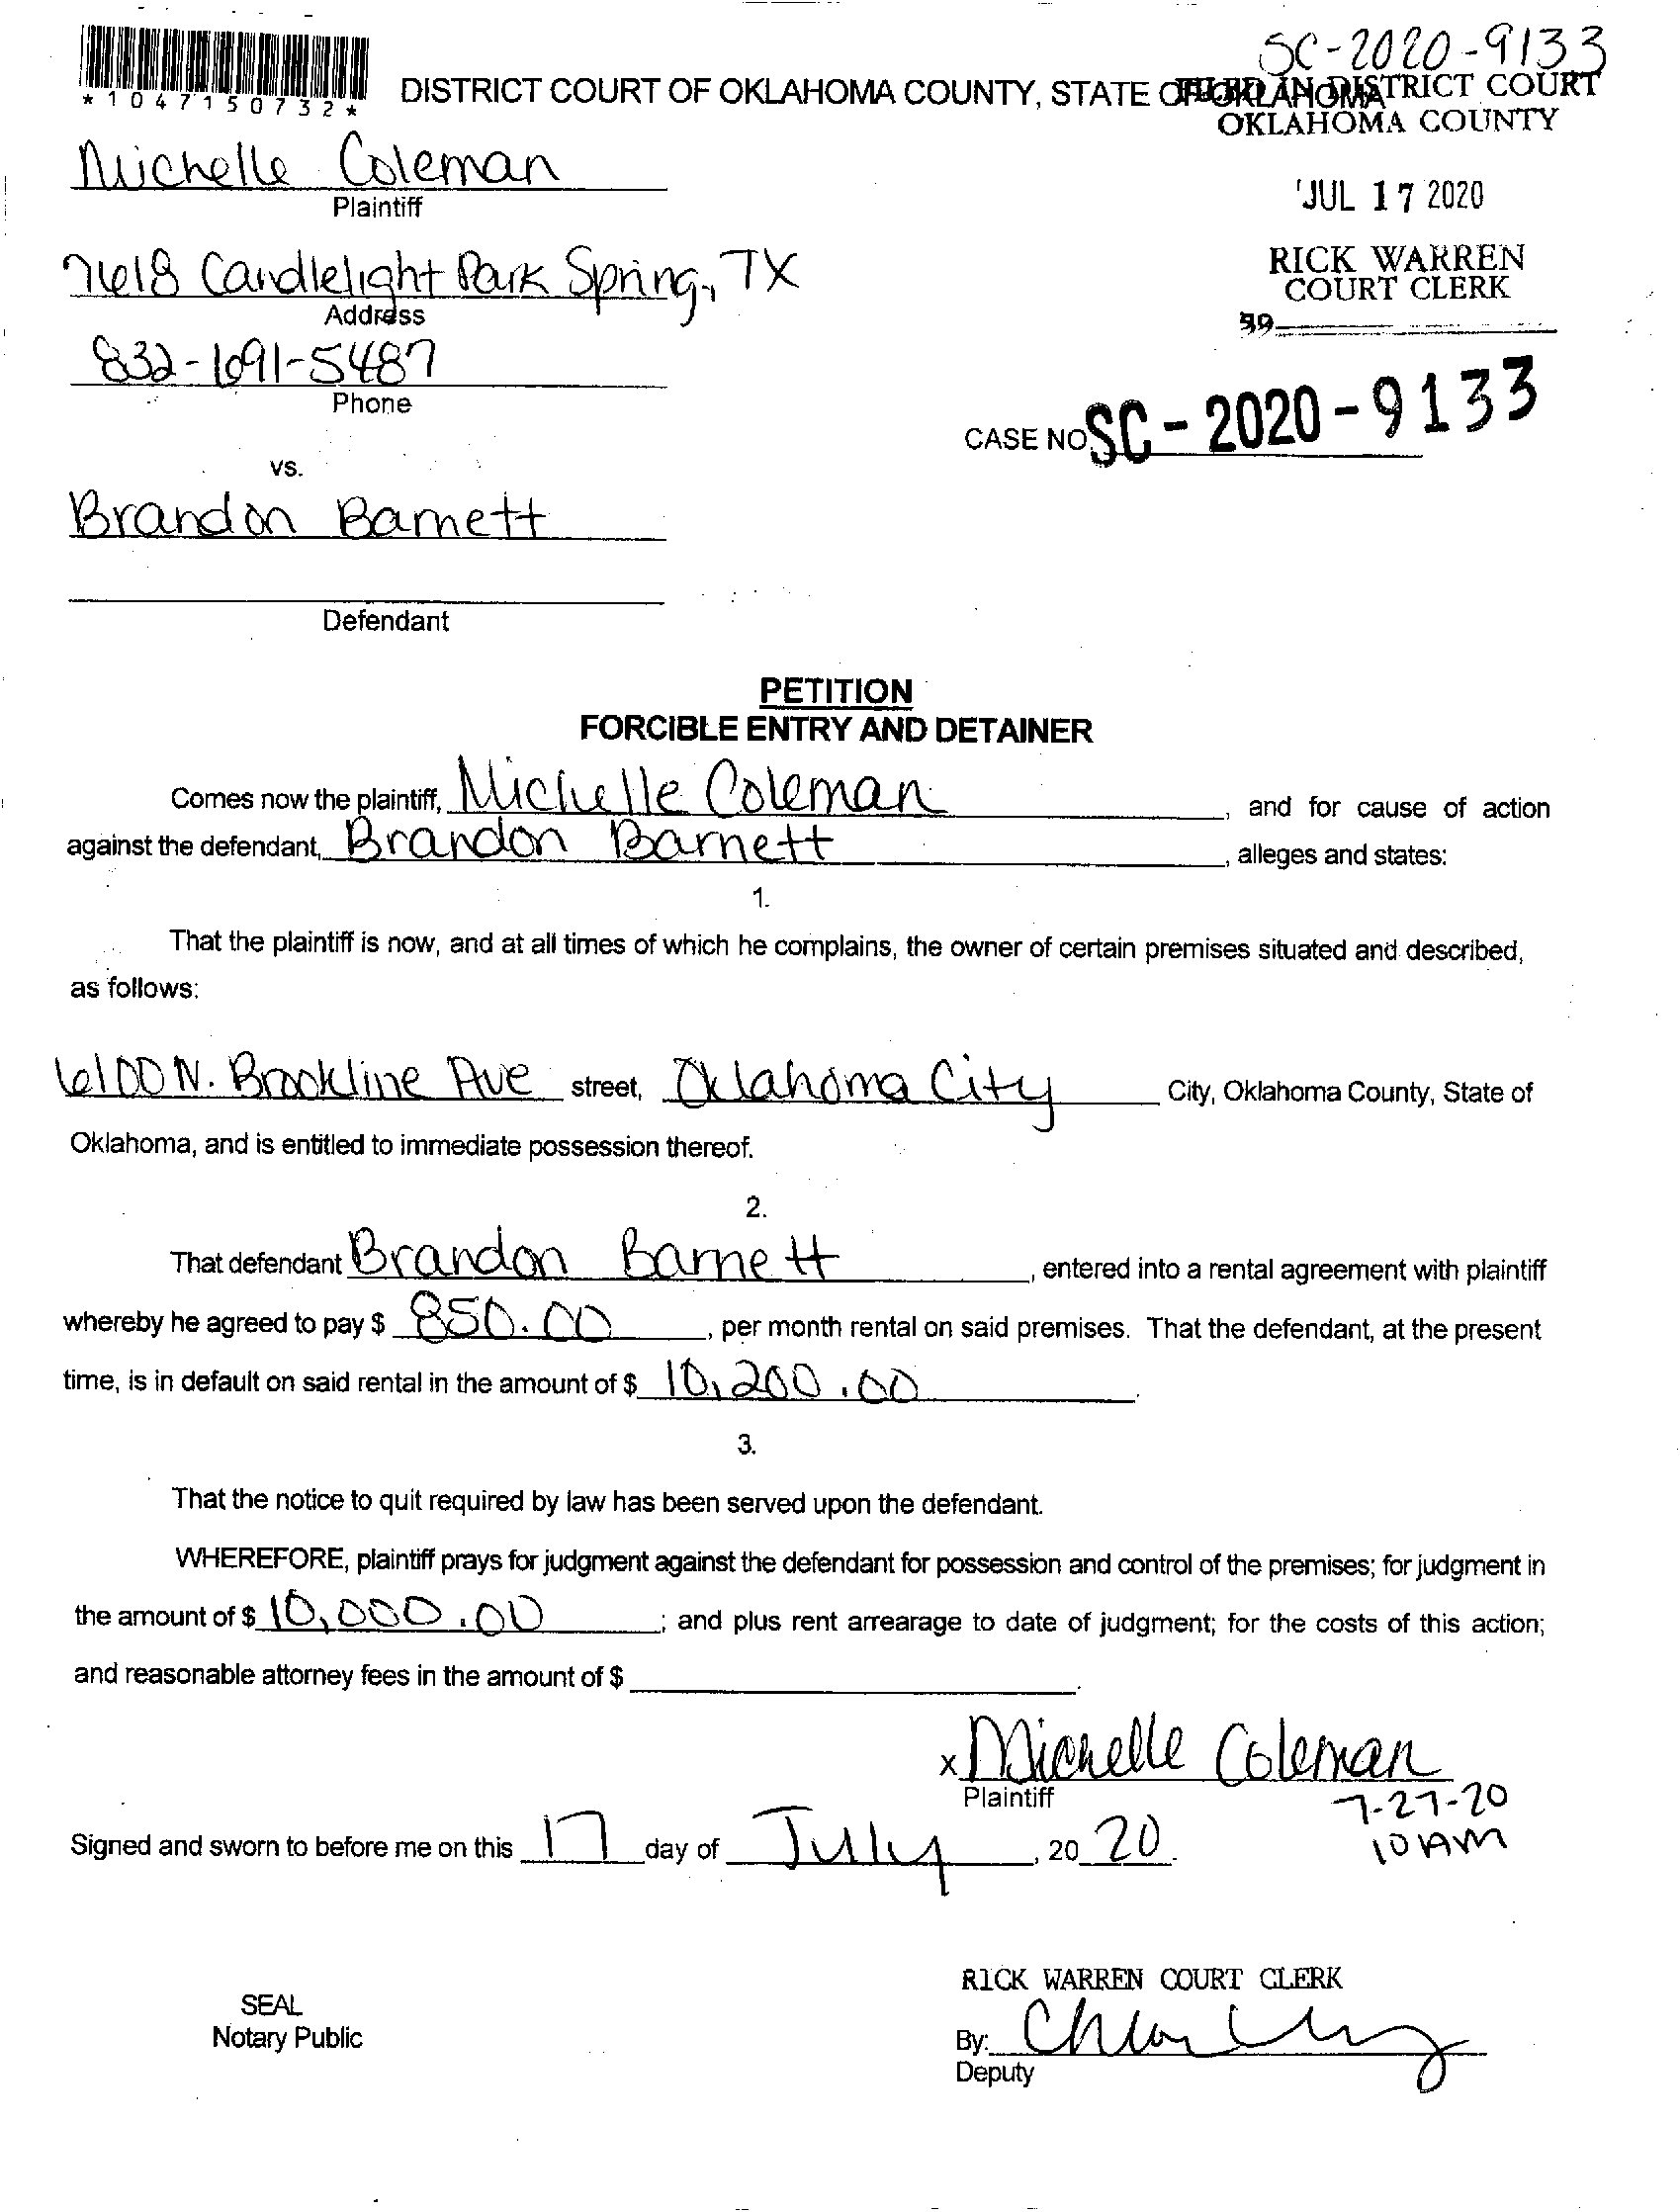 SC-2020-9133
*1047150732*
DISTRICT COURT OF OKLAHOMA COUNTY, STATE OF OKLAHOMA
FILED IN DISTRICT COURT
OKLAHOMA COUNTY
Michelle Coleman
Plaintiff
JUL 17 2020
7618 Candlelight Park Spring, TX
Address
RICK WARREN
COURT CLERK
39
832-691-5487
Phone
CASE NO. SC-2020-9133
vs.
Brandon Barnett
Defendant
PETITION
FORCIBLE ENTRY AND DETAINER
Comes now the plaintiff, Michelle Coleman, and for cause of action
against the defendant, Brandon Barnett, alleges and states:
1.
That the plaintiff is now, and at all times of which he complains, the owner of certain premises situated and described,
as follows:
6100 N. Brookline Ave street, Oklahoma City City, Oklahoma County, State of
Oklahoma, and is entitled to immediate possession thereof.
2.
That defendant Brandon Barnett, entered into a rental agreement with plaintiff
whereby he agreed to pay $ 850.00, per month rental on said premises. That the defendant, at the present
time, is in default on said rental in the amount of $ 10,200.00.
3.
That the notice to quit required by law has been served upon the defendant.
WHEREFORE, plaintiff prays for judgment against the defendant for possession and control of the premises; for judgment in
the amount of $ 10,000.00; and plus rent arrearage to date of judgment; for the costs of this action;
and reasonable attorney fees in the amount of $
x Michelle Coleman
Plaintiff
7-27-20
10 AM
Signed and sworn to before me on this 17 day of July, 20 20.
RICK WARREN COURT CLERK
SEAL
Notary Public
By:
Deputy